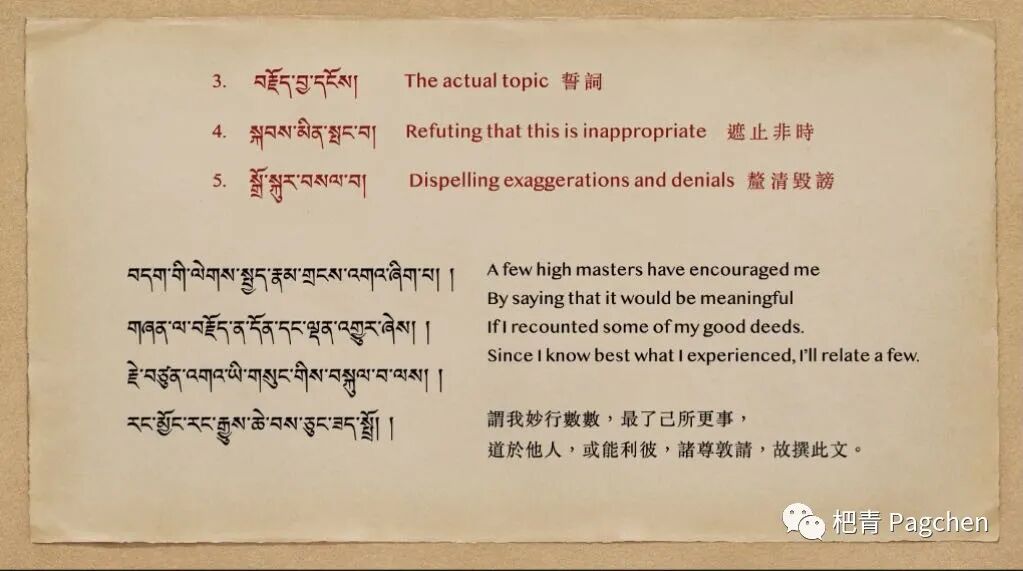 3. བརྗོད་བྱ་དངོས། The actual topic 誓詞
4. སྐབས་མིན་སྤང་བ། Refuting that this is inappropriate 遮止非時
5. སྒྲོ་སྐུར་བསལ་བ། Dispelling exaggerations and denials 釐清毀謗
བདག་གི་ལེགས་སྤྱད་རྣམ་གྲངས་འགའ་ཞིག་པ། །
གཞན་ལ་བརྗོད་ན་དོན་དང་ལྡན་འགྱུར་ཞེས། །
རྗེ་བཙུན་འགའ་ཡི་གསུང་གིས་བསྐུལ་བ་ལས། །
རང་མྱོང་རང་རྒྱུས་ཆེ་བས་ཅུང་ཟད་སྤྲོ། །
A few high masters have encouraged me
By saying that it would be meaningful
If I recounted some of my good deeds.
Since I know best what I experienced, I'll relate a few.
謂我妙行數數，最了己所更事，
道於他人，或能利彼，諸尊敦請，故撰此文。
杷青 Pagchen